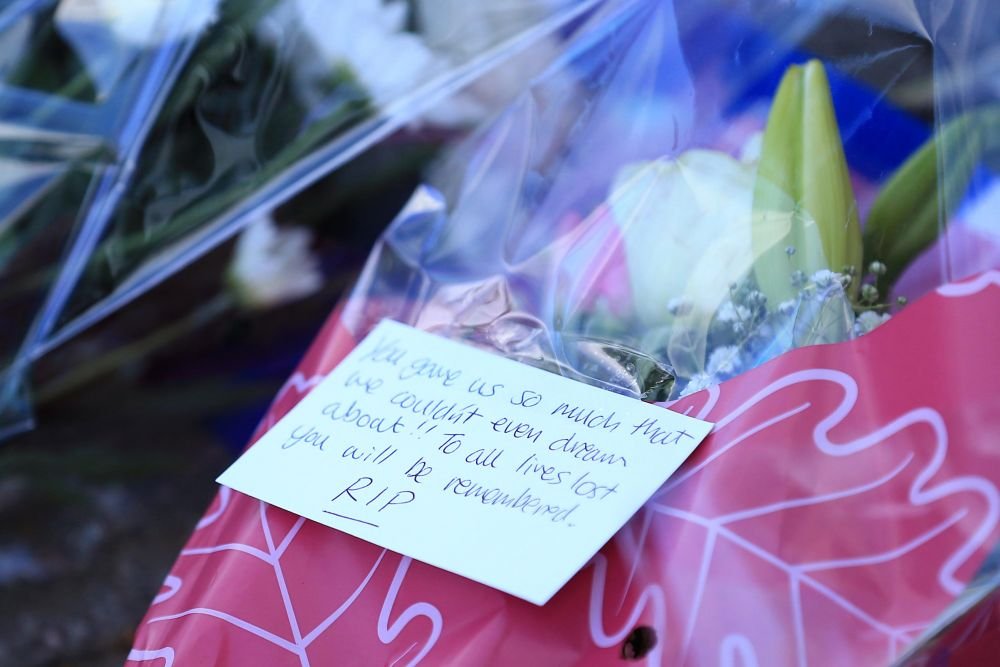 You gave us so much that
we couldn't even dream
about!! To all lives lost
you will be remembered.
RIP